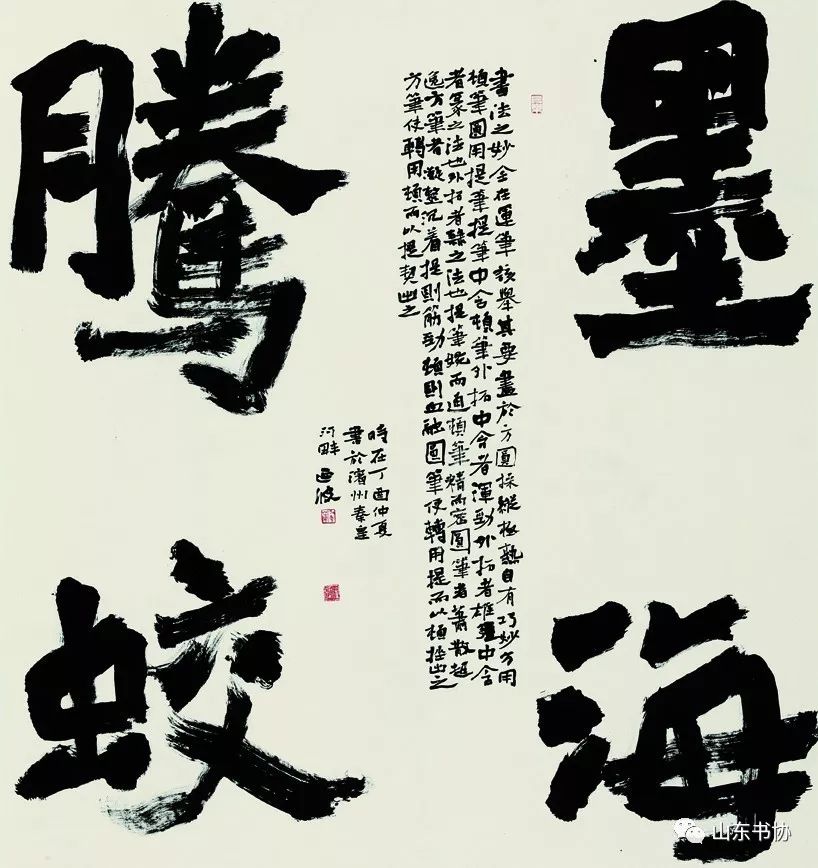 墨海
騰蛟
書法之妙全在運筆該舉其要盡於方圓操縱極熟自有巧妙方用
頓筆圓用提筆提筆中含頓筆外拓中含者渾勁外拓者雄彊中含
者篆之法也外拓者隸之法也提筆婉而通頓筆精而密圓筆者蕭散超
逸方筆者凝整沉着提則筋勁頓則血融圓筆使轉用提而以頓挫出之
方筆使轉用頓而以提契出之
時在丁酉仲夏
書於濱州秦皇
河畔 波
山东书协